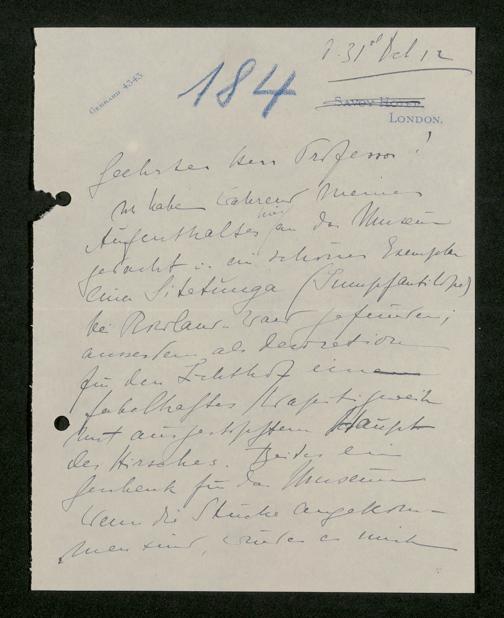 31st Oct 12
184
GERRARD 4343.
SAVOY HOTEL
LONDON.
Geehrter Herr Professor!
Wir haben während meines
Aufenthaltes hier an das Museum
gedacht u. ein schönes Exemplar
einer Sitetunga (Sumpfantilope)
bei Rowland Ward gefunden;
ausserdem als Decoration
für den Lichthof ein
fabelhaftes Wapitigeweih
mit ausgestopftem Haupt
des Hirsches. Beides ein
Geschenk für das Museum
Wenn die Stücke angekom-
men sind, würde es mich